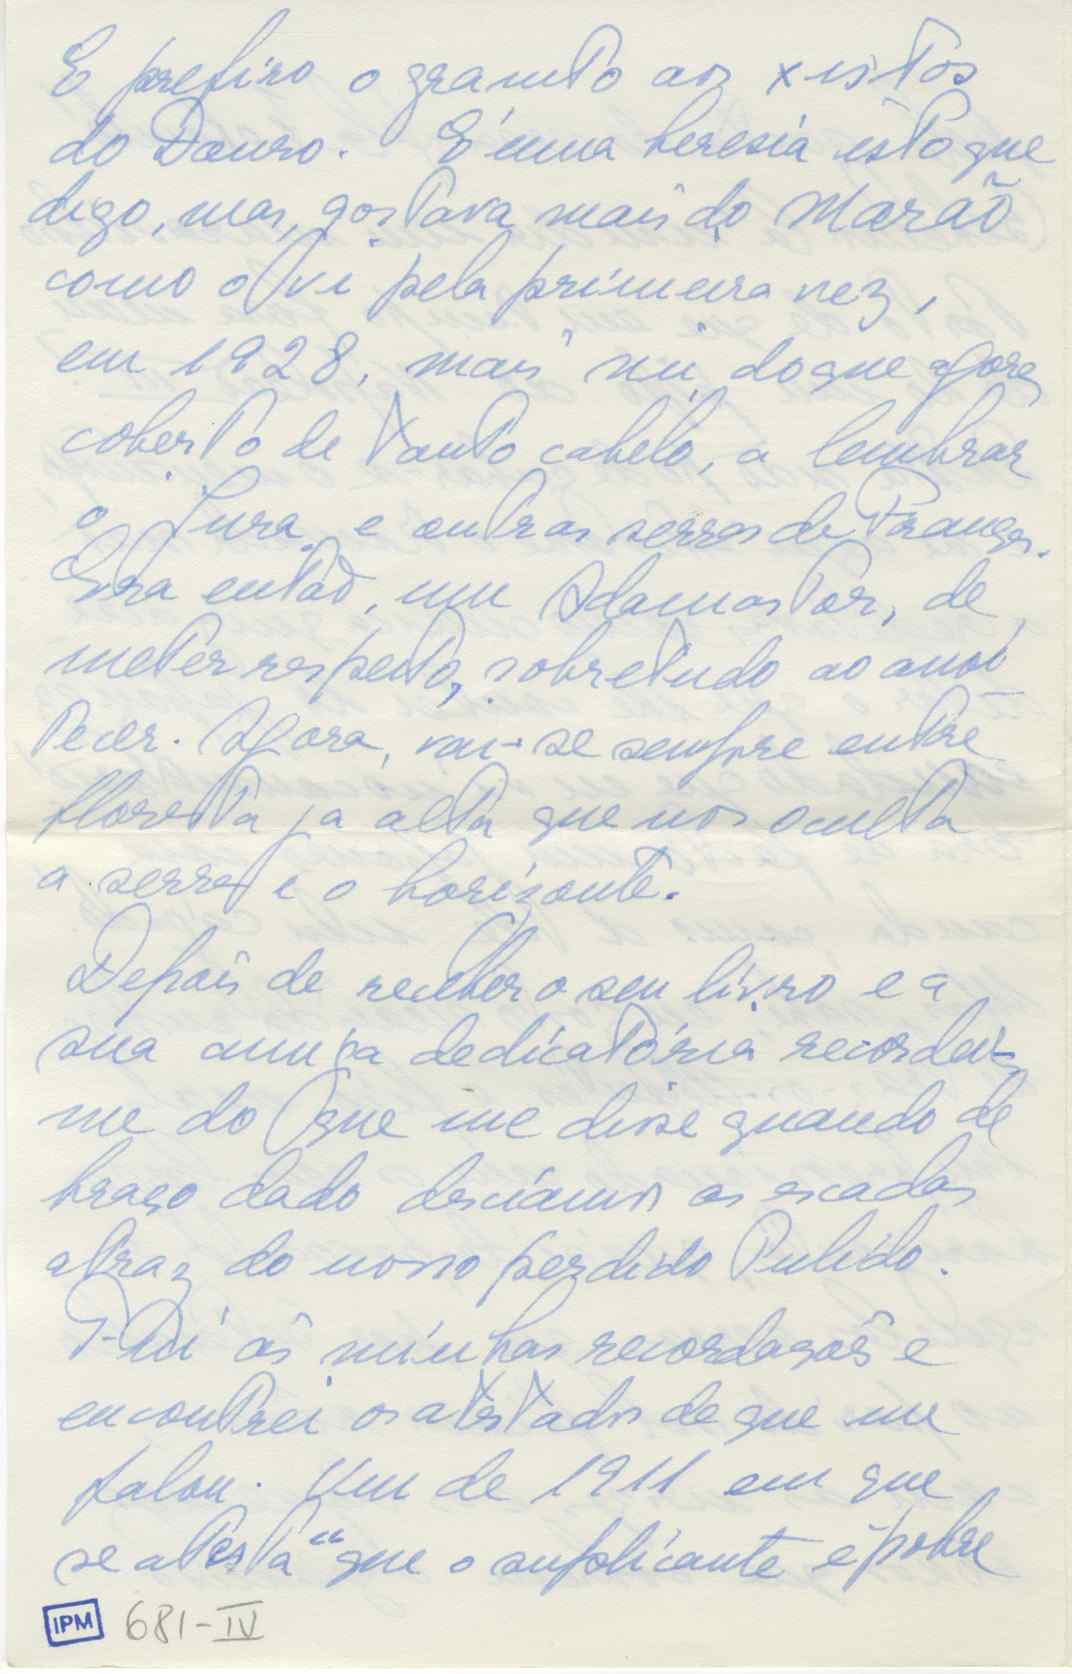 E prefiro o granito aos xistos
do Douro. É uma heresia isto que
digo, mas, gostava mais do Marão
como o vi pela primeira vez,
em 1928, mais nú, do que agora,
coberto de tanto cabelo, a lembrar
o Jura e outras serras de França.
Era então, um Adamastor, de
meter respeito, sobretudo ao anoi
tecer. Agora, vai-se sempre entre
floresta ja alta que nos oculta
a serra e o horizonte.
Depois de receber o seu livro e a
sua amiga dedicatória recordei-
me do que me disse quando de
braço dado desciamos as escadas
atraz do nosso perdido Pulido.
Fui ás minhas recordações e
encontrei os atestados de que me
falou. Um de 1911 em que
se atesta "que o suplicante é pobre
IPM 681-IV